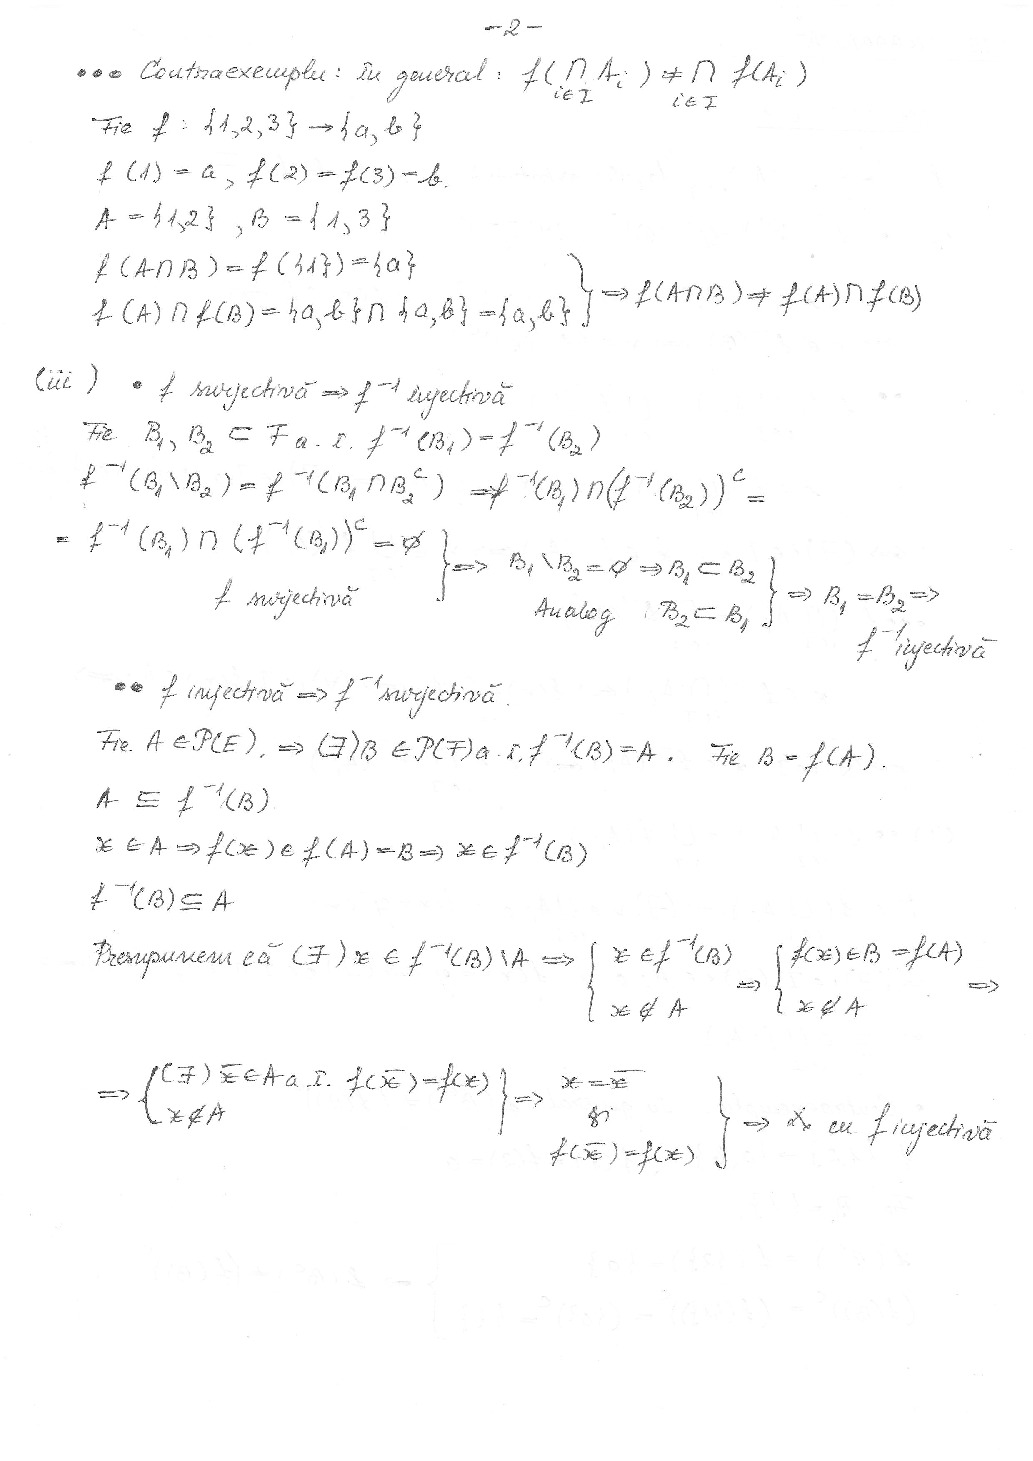 -2-
••• Contraexemplu: În general: f(∩ Ai) ≠ ∩ f(Ai)
i∈I i∈I
Fie f : {1,2,3} → {a, b}
f(1) = a, f(2) = f(3) = b.
A = {1,2}, B = {1,3}
f(A∩B) = f({1}) = {a}
f(A)∩f(B) = {a,b}∩{a,b} = {a,b} } ⇒ f(A∩B) ≠ f(A)∩f(B)
(iii) • f surjectivă ⇒ f⁻¹ injectivă
Fie B₁, B₂ ⊂ F a. î. f⁻¹(B₁) = f⁻¹(B₂)
f⁻¹(B₁\B₂) = f⁻¹(B₁∩B₂ᶜ) = f⁻¹(B₁)∩(f⁻¹(B₂))ᶜ =
= f⁻¹(B₁)∩(f⁻¹(B₁))ᶜ = ∅
f surjectivă } ⇒ B₁\B₂ = ∅ ⇒ B₁ ⊂ B₂
Analog : B₂ ⊂ B₁ } ⇒ B₁ = B₂ ⇒
f⁻¹ injectivă
•• f injectivă ⇒ f⁻¹ surjectivă.
Fie A ∈ P(E). ⇒ (∃) B ∈ P(F) a. î. f⁻¹(B) = A. Fie B = f(A).
A ⊆ f⁻¹(B)
x ∈ A ⇒ f(x) ∈ f(A) = B ⇒ x ∈ f⁻¹(B)
f⁻¹(B) ⊆ A
Presupunem că (∃) x ∈ f⁻¹(B)\A ⇒ { x ∈ f⁻¹(B) ⇒ { f(x) ∈ B = f(A) ⇒
x ∉ A x ∉ A
⇒ { (∃) x̄ ∈ A a. î. f(x̄) = f(x) } ⇒ x = x̄
x ∉ A și
f(x̄) = f(x) } ⇒ cu f injectivă